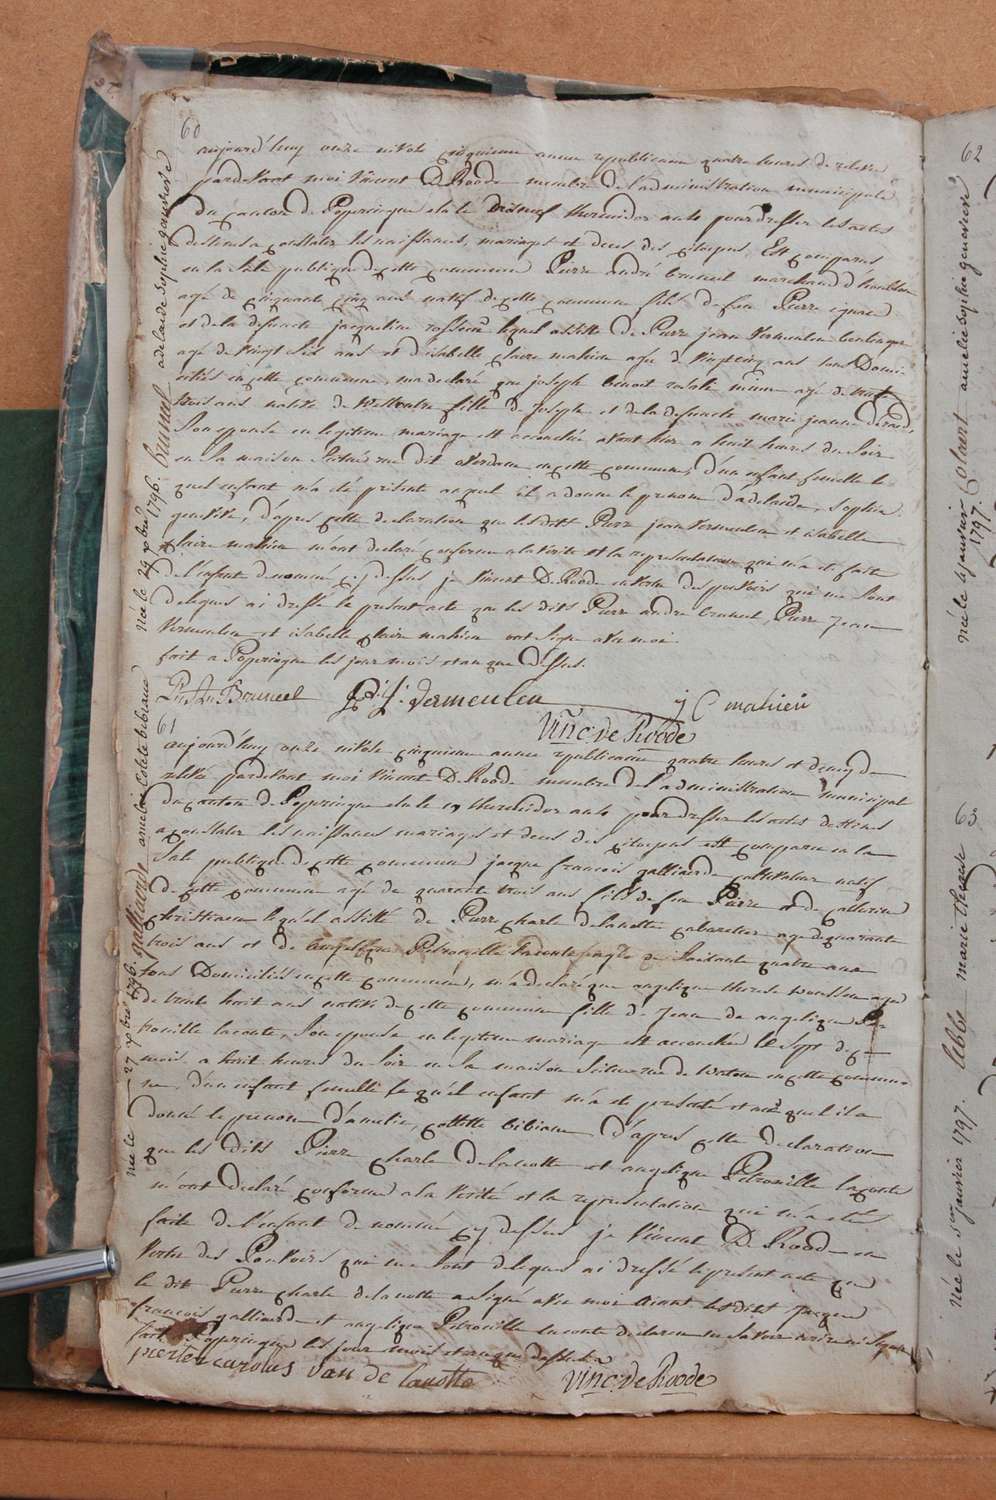 60
aujourd'huy onze nivose cinquieme annee republicaine quatre heures de relevee
pardevant moi Vincent De Roode membre de l'administration municipale
du canton de Poperingue elu le dixneuf thermidor an 4 pour dresser les actes
destines a constater les naissances, mariages et deces des citoyens, Est comparus
en la sale publique de cette commune Pierre andré bruneel marchand d'houblon
agé de cinquante cinq ans natif de cette commune fils de feu Pierre ignace
et de la defuncte jacqueline lequel assisté de Pierre jean Vermeulen
agé de vingt six ans et d'isabelle claire mahieu age de vingt cinq ans tous Domi-
ciliés en cette commune, m'a declaré que joseph benoit agé de trente
trois ans native de Westoutre fille de joseph et de la defuncte marie jeanne
Son epouse en legitime mariage est accouchée avant hier a huit heures du Soir
en Sa maison Scituée rue dit en cette commune, d'un enfant femelle le
quel enfant m'a été présenté auquel il a donne le prenom d'adelaide, Sophie
genevieve, d'apres cette declaration que lesdits Pierre jean Vermeulen et isabelle
claire mahieu m'ont declaré conforme a la vérité et la representation qui m'a été faite
de l'enfant denommé cy dessus je Vincent De Roode en vertu des pouvoirs qui me sont
delegues ai dressé le présent acte que les dits Pierre andre bruneel, Pierre Jean
Vermeulen et isabelle claire mahieu ont Signe avec moi
fait a Poperingue les jour mois et an que dessus.
Pr An Bruneel P: j: Vermeulen y C mahieu
Vinc: de Roode
61
aujourd'huy onze nivose cinquieme annee republicaine quatre heures et demy de
relevée pardevant moi Vincent De Roode membre de l'administration municipal
du canton de Poperingue elu le 19 thermidor an 4 pour dresser les actes destines
a constater les naissances mariages et deces des citoyens est comparu en la
Sale publique de cette commune jacque francois galliaerde cultivateur natif
de cette commune agé de quarante trois ans fils de feu Pierre et de catherine
lequel assisté de Pierre charle delanotte cabaretier age de quarante
trois ans et de angelique Petronille laconte agée de Soixante quatre ans
tous Domiciliés en cette commune, m'a declaré que angelique therese agé
de trente huit ans native de cette commune fille de Jean de angelique Pe-
tronille laconte, Son epouse en legitime mariage est accouchée le Sept de ce
mois a huit heures du Soir en Sa maison Scituee rue de watou en cette commu-
ne, d'un enfant femelle le quel enfant m'a ete presenté et au quel il a
donné le prenom d'amelie, collette bibiane d'apres cette declaration
que les dits Pierre charle delanotte et angelique Petronille laconte
m'ont declaré conforme a la Verité et la representation qui m'a eté
faite de l'enfant denommé cy dessus je Vincent De Roode en
vertu des Pouvoirs qui me Sont delegues ai dressé le present acte que
le dit Pierre charle delanotte a Signé avec moi aiant les dits jacque
francois galliaerde et angelique Petronille laconte declaré ne Savoir ecrire ni Signer
fait a Poperingue les jour mois et an que dessus
pieter carolus van de lanotte Vinc: de Roode
née le 29 xbre 1796. Bruneel adelaide sophie genevieve
née le 27 xbre 1796. galliaerde amelie Colette bibiane
62
née le janvier 1797. amelie sophie genevieve
63
née le janvier 1797. lebbe marie therese